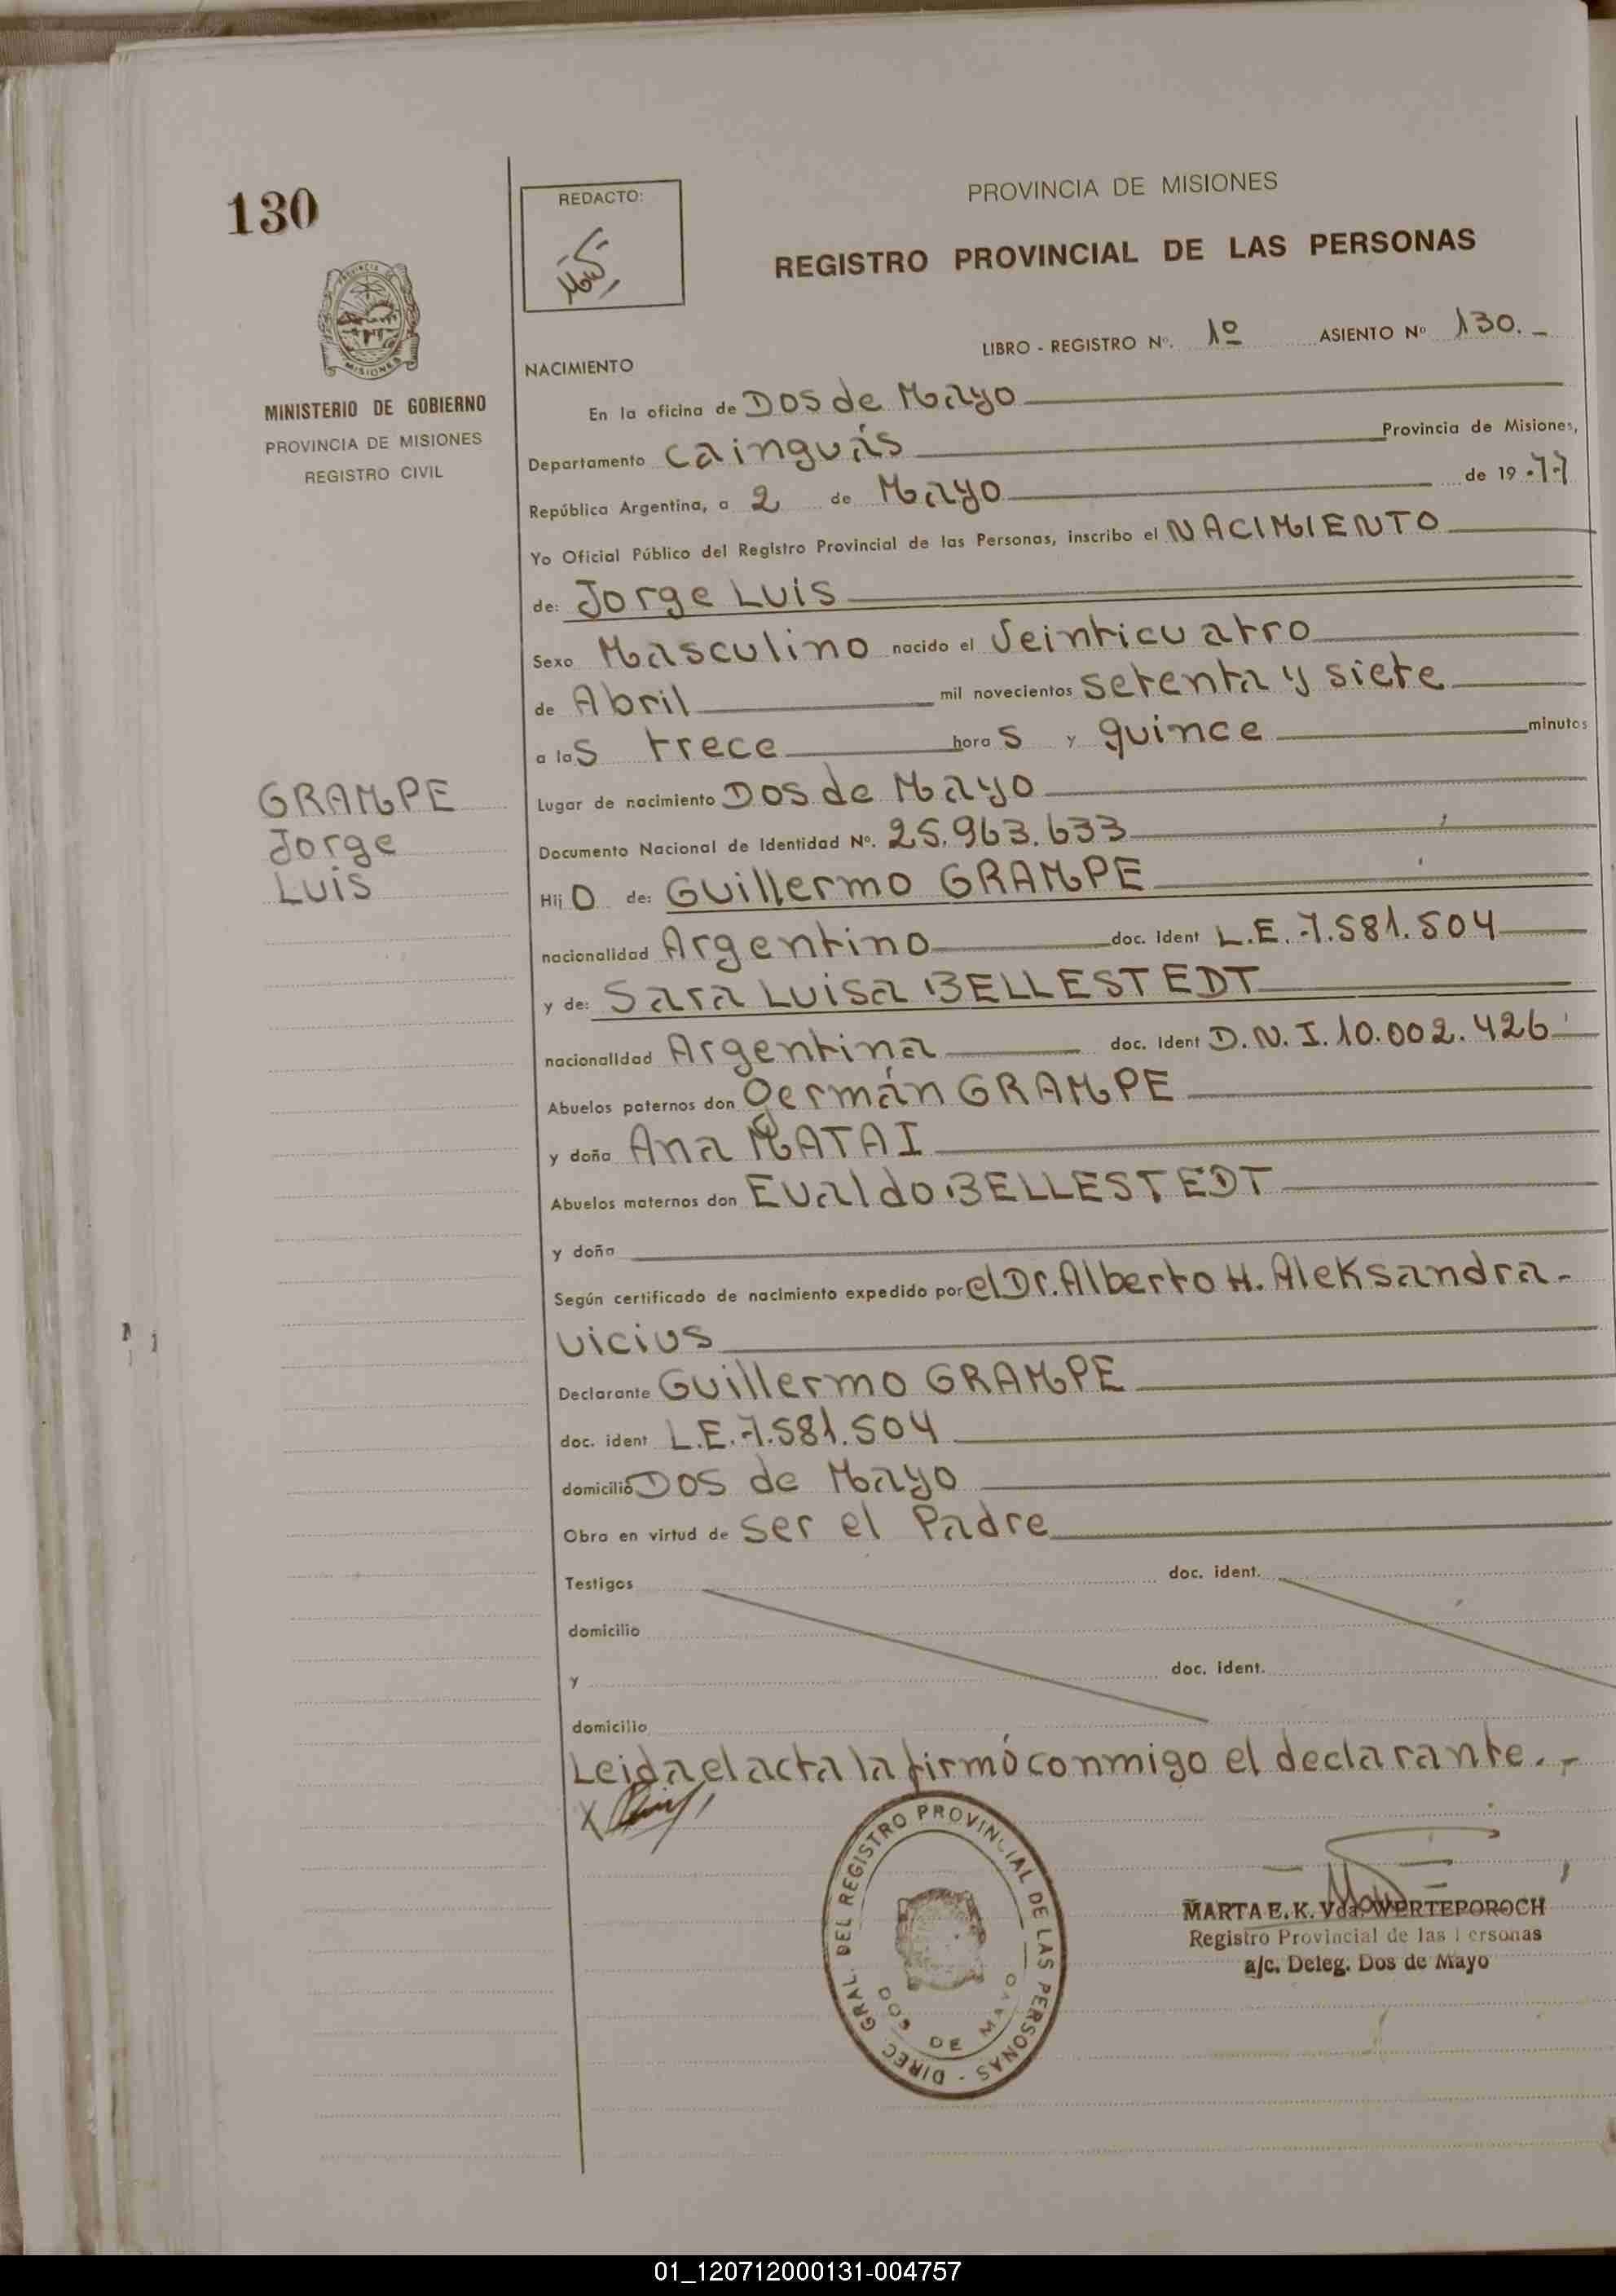 130
PROVINCIA DE MISIONES
MINISTERIO DE GOBIERNO
PROVINCIA DE MISIONES
REGISTRO CIVIL
GRAMPE
Jorge
Luis
REDACTO:
PROVINCIA DE MISIONES
REGISTRO PROVINCIAL DE LAS PERSONAS
LIBRO - REGISTRO Nº. 1º ASIENTO Nº 130.-
NACIMIENTO
En la oficina de Dos de Mayo
Departamento Cainguás Provincia de Misiones,
República Argentina, a 2 de Mayo de 19 77
Yo Oficial Público del Registro Provincial de las Personas, inscribo el NACIMIENTO
de: Jorge Luis
Sexo Masculino nacido el Veinticuatro
de Abril mil novecientos setenta y siete
a las trece horas y quince minutos
Lugar de nacimiento Dos de Mayo
Documento Nacional de Identidad Nº. 25.963.633
Hijo de: Guillermo GRAMPE
nacionalidad Argentino doc. ident L.E. 7.581.504
y de: Sara Luisa BELLESTEDT
nacionalidad Argentina doc. ident D.N.I. 10.002.426
Abuelos paternos don Germán GRAMPE
y doña Ana MATAI
Abuelos maternos don Evaldo BELLESTEDT
y doña
Según certificado de nacimiento expedido por el Dr. Alberto H. Aleksandra-
vicius
Declarante Guillermo GRAMPE
doc. ident L.E. 7.581.504
domicilio Dos de Mayo
Obra en virtud de ser el Padre
Testigos doc. ident.
domicilio
y doc. ident.
domicilio
Leida el acta la firmó conmigo el declarante.-
X
DIREC. GRAL. DEL REGISTRO PROVINCIAL DE LAS PERSONAS -
DOS DE MAYO
MARTA E. K. Vda. WERTEPOROCH
Registro Provincial de las Personas
a/c. Deleg. Dos de Mayo
01_120712000131-004757